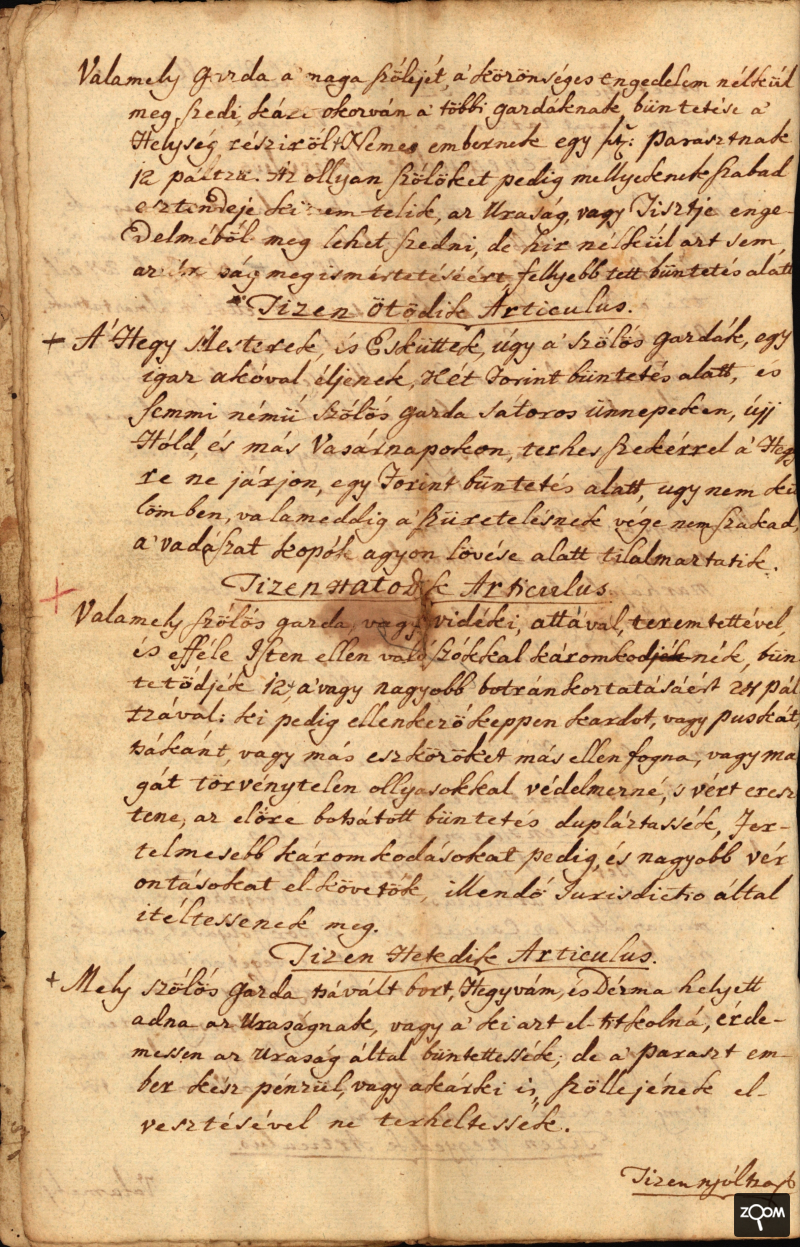 Valamely Gazda a' maga szőlejét, a' közönséges engedelem nélkül
meg szedi, káre okozván a' többi gazdáknak büntetése a'
Helység részirölt Nemes embernek egy frt: Parasztnak
12 páltza. Az ollyan szőlöket pedig mellyeknek szabad
esztendeje ki nem telik, az Uraság, vagy Tisztje enge-
delméböl meg lehet szedni, de hir nélkül azt sem,
az Uraság megismértetéséért, fellyebb tett büntetés alatt
Tizen ötödik Articulus.
+ A' Hegy Mesterek, és Esküttek, úgy a' szőlős gazdák, egy
igaz akóval éljenek, Hét forint büntetés alatt, és
semmi némü szőlős gazda sátoros ünnepeken, újj
Hóld, és más Vasárnapokon, terhes szekérrel a' Hegy
re ne járjon, egy forint büntetés alatt, ugy nem kü
lömben, valameddig a' szüretelésnek vége nem szakad,
a' vadászat kopók agyon lövése alatt tilalmaztatik.
Tizen Hatodik Articulus.
+ Valamely szőlős gazda, vagy vidéki, attával, teremtettével
és efféle Isten ellen való szókkal káromkodjék nék, bün
tetödjék 12, a' vagy nagyobb botránkoztatásáért 24 pál
tzával: ki pedig ellenkezőképpen kardot, vagy puskát,
tsákánt, vagy más eszközöket más ellen fogna, vagy ma
gát törvénytelen ollyasokkal védelmezné, s vért eresz
tene, az előre botsátott büntetés dupláztassék, Ter-
telmesebb káromkodásokat pedig, és nagyobb vér
ontásokat el követök, illendő Jurisdictio által
itéltessenek meg.
Tizen Hetedik Articulus.
+ Mely szőlős Gazda tsávált bort, Hegyvám, és Dézma helyett
adna az Uraságnak, vagy a' ki azt el-titkolná, érde-
messen az Uraság által büntettessék; de a' paraszt em-
ber kész pénzül, vagy akárki is, szőllejének el-
vesztésével ne terheltessék.
Tizennyóltzad
ZOOM